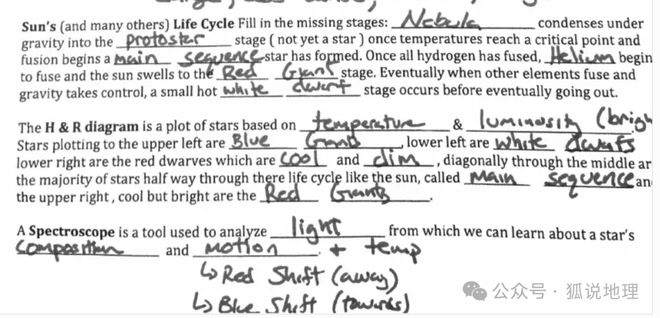 Sun's (and many others) Life Cycle Fill in the missing stages: Nebula condenses under
gravity into the protostar stage ( not yet a star ) once temperatures reach a critical point and
fusion begins a main sequence star has formed. Once all hydrogen has fused, Helium begin
to fuse and the sun swells to the Red Giant stage. Eventually when other elements fuse and
gravity takes control, a small hot white dwarf stage occurs before eventually going out.
The H & R diagram is a plot of stars based on temperature & luminosity (brigh
Stars plotting to the upper left are Blue Giants, lower left are white dwafs
lower right are the red dwarves which are cool and dim, diagonally through the middle ar
the majority of stars half way through there life cycle like the sun, called Main sequence an
the upper right, cool but bright are the Red Giants.
A Spectroscope is a tool used to analyze light from which we can learn about a star's
composition and motion. + temp
↳ Red Shift (away)
↳ Blue Shift (towards)
公众号·狐说地理